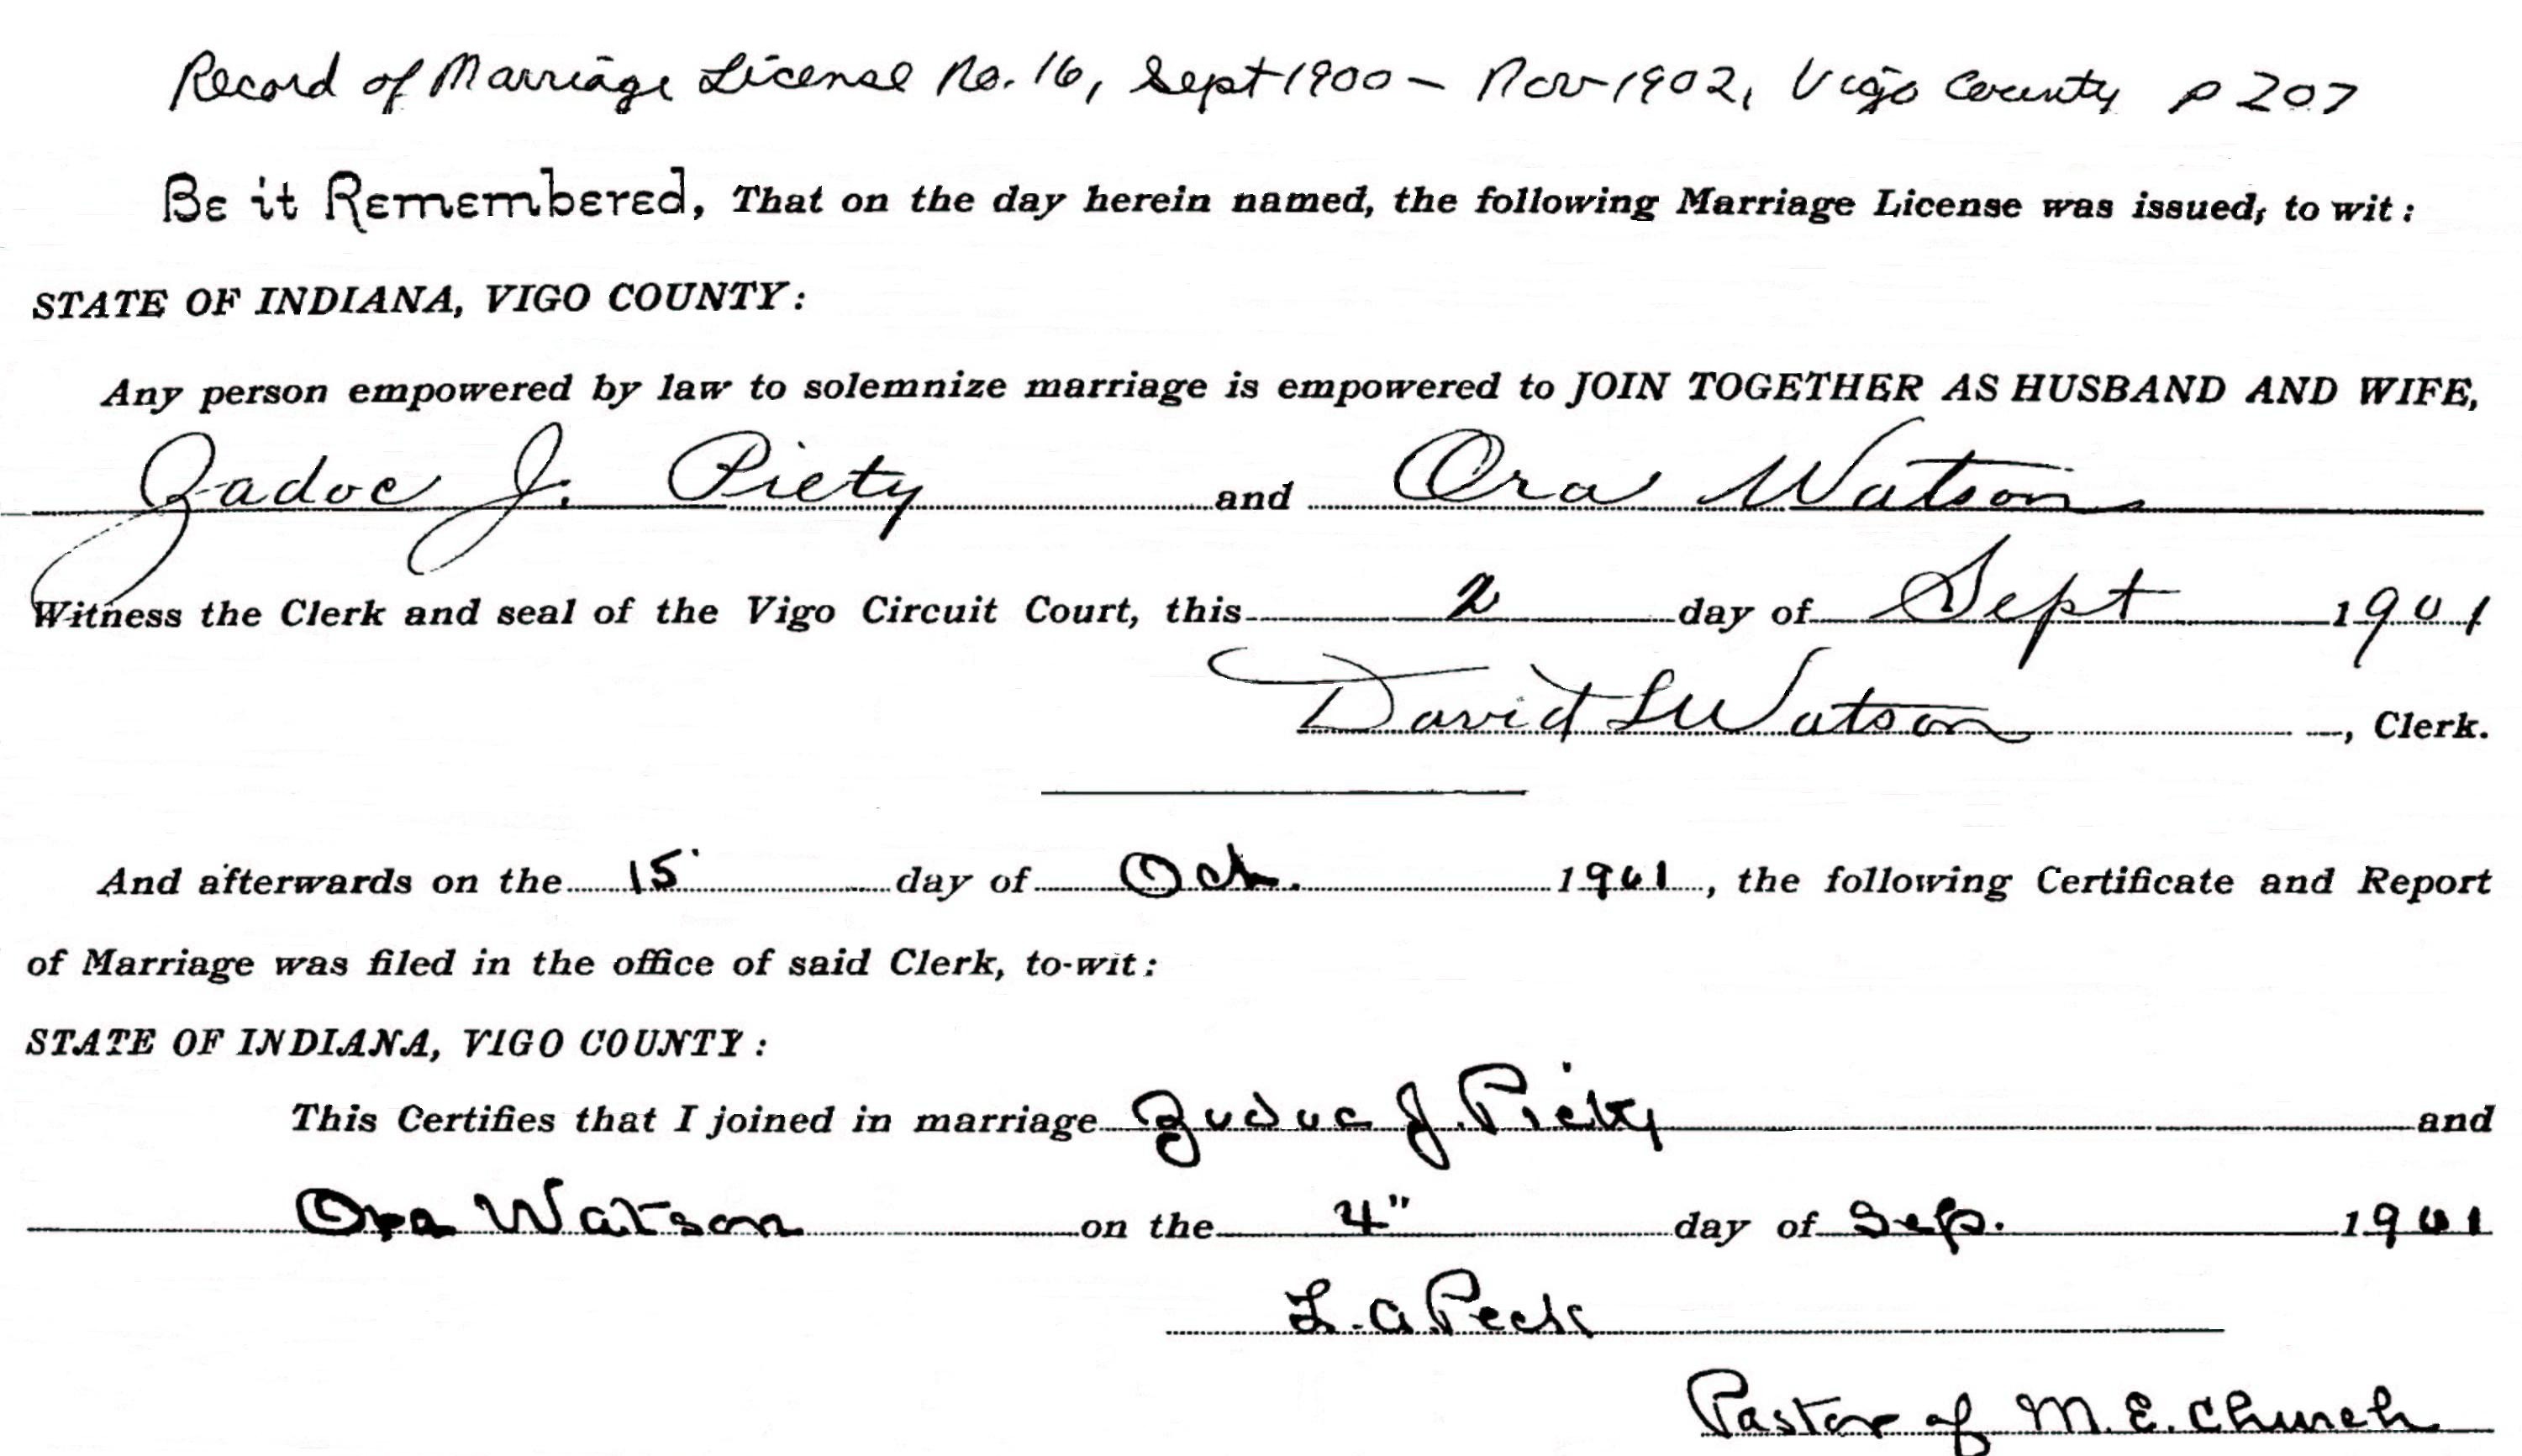 Record of Marriage License No. 16, Sept 1900 - Nov 1902, Vigo County p 207
Be it Remembered, That on the day herein named, the following Marriage License was issued, to wit:
STATE OF INDIANA, VIGO COUNTY:
Any person empowered by law to solemnize marriage is empowered to JOIN TOGETHER AS HUSBAND AND WIFE,
Zadoc J. Piety and Ora Watson
Witness the Clerk and seal of the Vigo Circuit Court, this 2 day of Sept 1901
David L Watson, Clerk.
And afterwards on the 15 day of Oct. 1901, the following Certificate and Report
of Marriage was filed in the office of said Clerk, to-wit:
STATE OF INDIANA, VIGO COUNTY:
This Certifies that I joined in marriage Zadoc J. Piety and
Ora Watson on the 4" day of Sep. 1901
L. A Peck
Pastor of M. E. Church